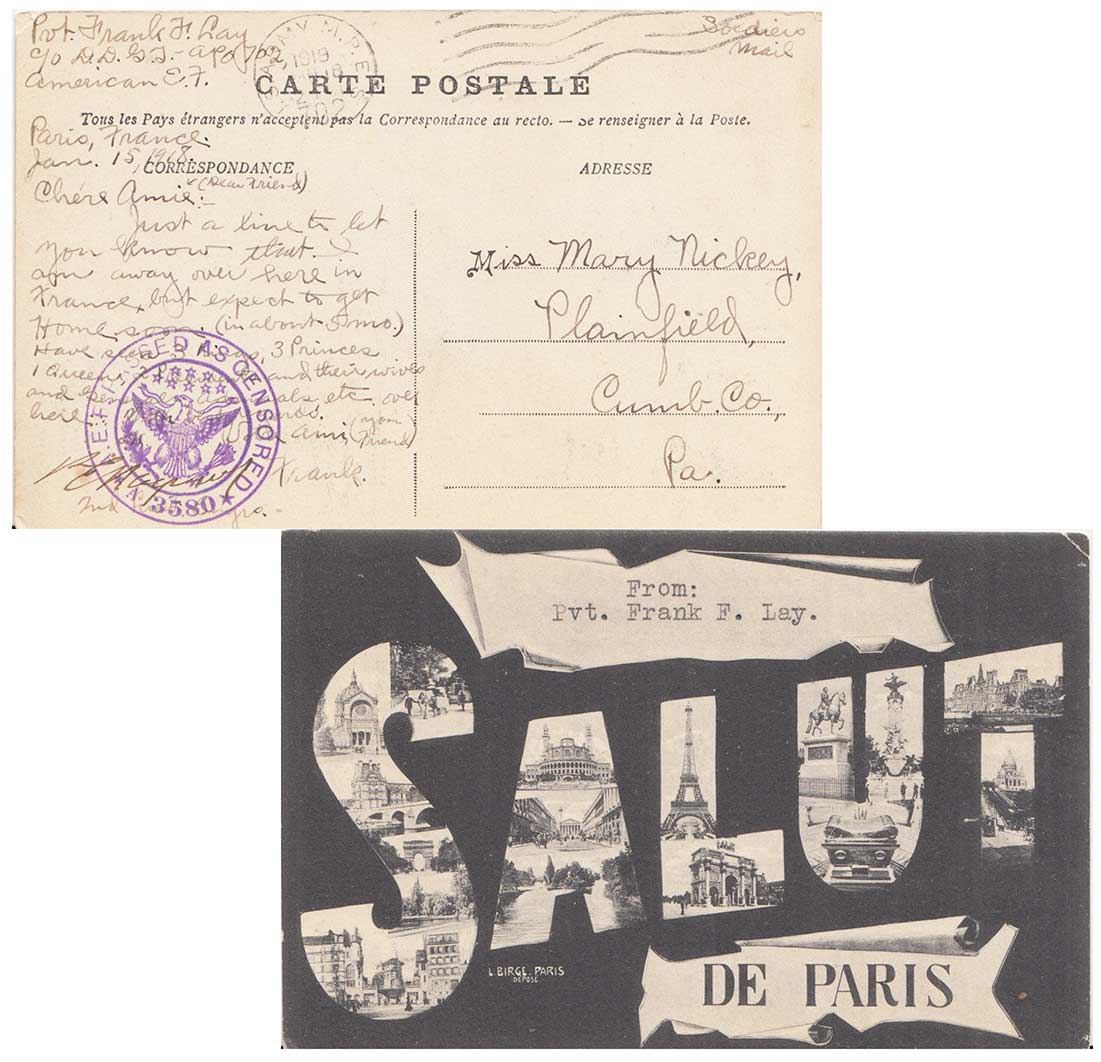 Pvt. Frank F. Lay
c/o D.D.G.T. - APO 702,
American E.F.
Soldiers
Mail
1919
702
CARTE POSTALE
Tous les Pays étrangers n'acceptent pas la Correspondance au recto. — Se renseigner à la Poste.
Paris, France.
Jan. 15, 1918.
CORRESPONDANCE
ADRESSE
(Dear Friend)
Chére Amie:-
Just a line to let
you know that I
am away over here in
France, but expect to get
Home soon. (in about 5 mo.)
Have seen 3 Kings, 3 Princes
1 Queen, 2 and their wives
and etc. over
here
Ami, (your
Friend)
Frank.
A.E.F. PASSED AS CENSORED
3580
Miss Mary Nickey,
Plainfield,
Cumb. Co.,
Pa.
From:
Pvt. Frank F. Lay.
SALUT
L BIRGE. PARIS
DEPOSE
DE PARIS